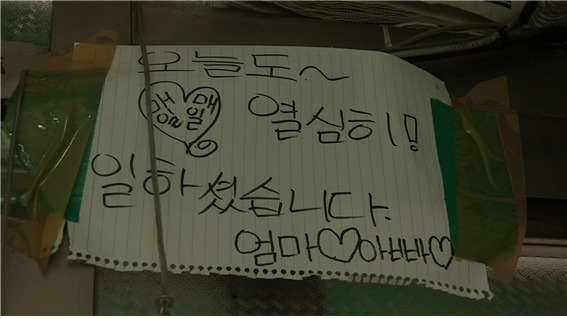 오늘도~
매일
열심히!
일하셨습니다.
엄마♡아빠♡